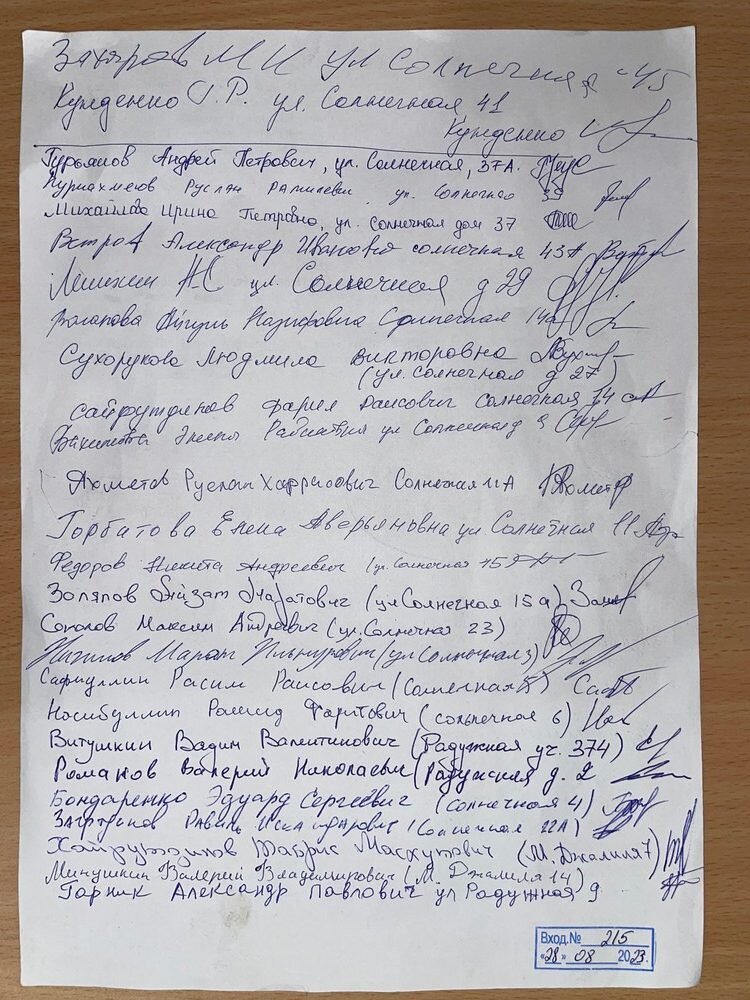 Захяров М И ул Солнечная 45
Кунденко Г.Р. ул. Солнечная 41
Кунденко
Гурьянов Андрей Петрович, ул. Солнечная, 37А.
Нурмахметов Руслан Рамилевич ул Солнечная 35
Михайлова Ирина Петровна, ул. Солнечная дом 37
Ветров Александр Иванович Солнечная 43А
А С ул. Солнечная д 29
Айгуль Назифовна Солнечная 14а
Сухорукова Людмила Викторовна
(ул. Солнечная д 27)
Сайфутдинов Фарил Раисович Солнечная 14
ул Солнечная д 9
Ахметов Руслан Харрисович Солнечная 11А
Горбатова Елена Аверьяновна ул Солнечная 11
Федоров Никита Андреевич (ул. Солнечная 15
Золяпов Айзат Талгатович (ул Солнечная 15а)
Соколов Максим Андреевич (ул. Солнечная 23)
Марат Ильнурович (ул Солнечная 3)
Сафиуллин Расим Раисович (Солнечная 5)
Носибуллин Рашид Фаритович (солнечная 6)
Витушкин Вадим Валентинович (Радужная уч. 374)
Романов Валерий Николаевич (Радужная д. 2
Бондаренко Эдуард Сергеевич (Солнечная 4)
Равиль (Солнечная 22А)
Хайрутдинов Табрис Масхутович (М. Джалиля 7)
Минушкин Валерий Владимирович (М. Джалиля 14)
Гарник Александр Павлович ул Радужная 9
Вход.№ 215
«28» 08 2023.